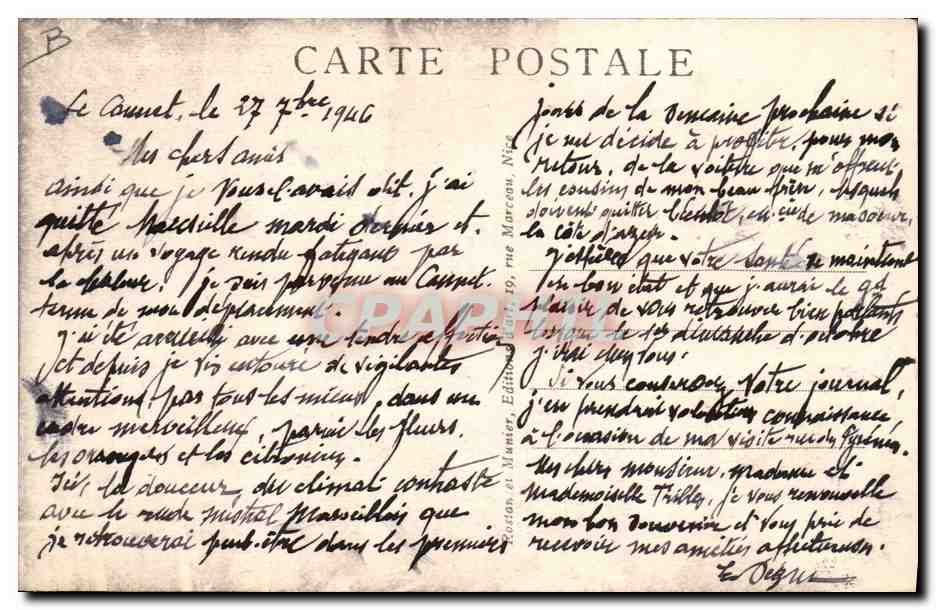 B
CARTE POSTALE
Le Cannet, le 27 7bre 1946
Mes chers amis
ainsi que je vous l'avais dit, j'ai
quitté Marseille mardi dernier et
après un voyage rendu fatigant par
la chaleur, je suis parvenu au Cannet
terme de mon déplacement.
j'ai été accueilli avec une tendre affection
et depuis je vis entouré de vigilantes
attentions, par tous les miens, dans un
cadre merveilleux, parmi les fleurs,
les orangers et les citronniers.
Ici, la douceur du climat contraste
avec le rude mistral marseillais que
je retrouverai peut-être dans les premiers
jours de la semaine prochaine si
je me décide à profiter, pour mon
retour, de la voiture que m'offrent
les cousins de mon beau frère, lesquels
doivent quitter bientôt, de ma soeur,
la côte d'azur.
J'espère que votre santé se maintient
en bon état et que j'aurai le gd
plaisir de vous retrouver bien portants
lorsque le 1er dimanche d'octobre
j'irai chez vous.
Si vous conservez votre journal,
j'en prendrai volontiers connaissance
à l'occasion de ma visite rue des Pyrénées.
Mes chers monsieur, madame et
mademoiselle Trilles, je vous renouvelle
mon bon souvenir et vous prie de
recevoir mes amitiés affectueuses.
Rostan et Munier, Editions d'art, 19, rue Marceau, Nice
CPARAMA